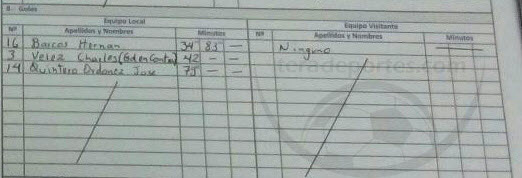 8. Goles
Equipo Local Equipo Visitante
Nº Apellidos y Nombres Minutos Nº Apellidos y Nombres Minutos
16 Barcos Hernan 34 83 — Ninguno —
3 Velez Charles (Gol en Contra) 42 — —
14 Quintero Ordonez Jose 75 — —